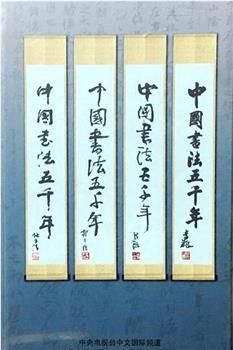 中國书法五千年
中國書法五千年
中國书法五千年
中國書法五千年
中央电视台中文国际频道